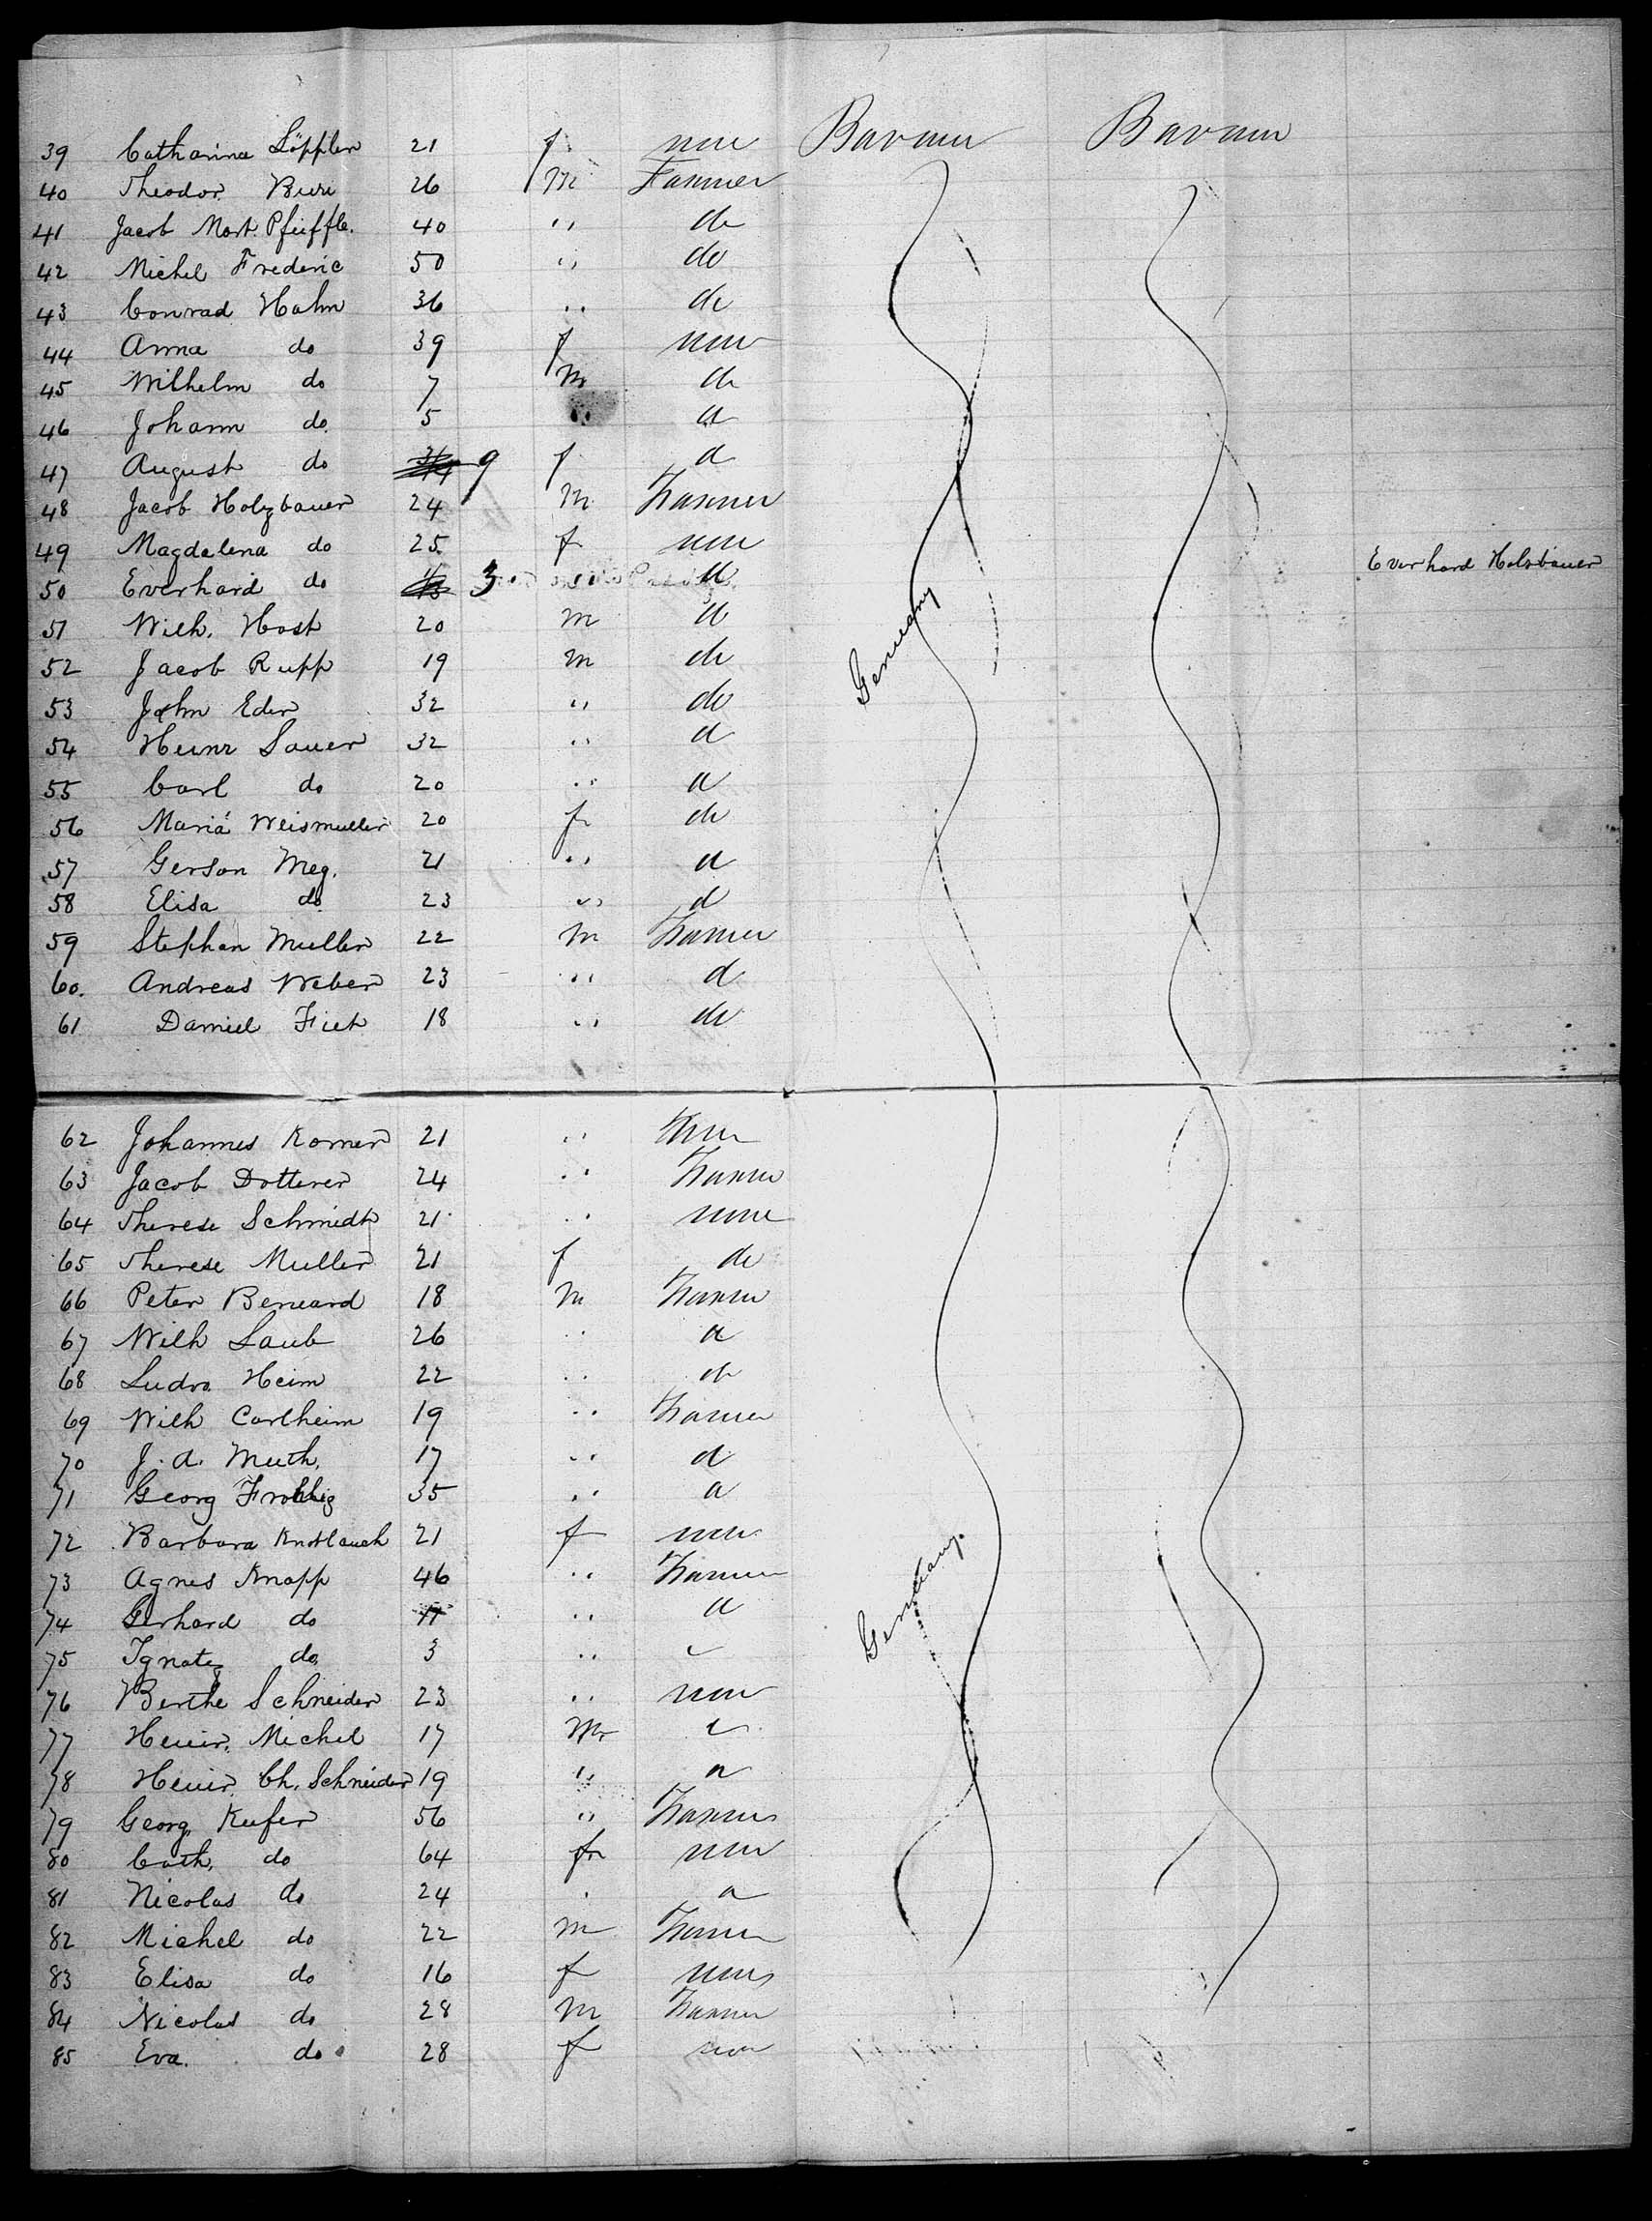 39 Catharina Löppler 21 f. none Bavaria Bavaria
40 Theodor Buri 26 m Farmer
41 Jacob Mart. Pfeiffle. 40 " do
42 Michel Frederic 50 " do
43 Conrad Hahn 36 " do
44 Anna do 39 f none
45 Wilhelm do 7 m do
46 Johann do. 5 " do
47 August do 9 f do
48 Jacob Holzbauer 24 m Farmer
49 Magdalena do 25. f none
50 Everhard do 3. " do Everhard Holzbauer
51 Wilh. Host 20 m do
52 Jacob Rupp 19 m do
53 John Eder 32 " do
Germany
54 Heinr Sauer 32 " do
55 Carl do 20 " do
56 Maria Weismuller 20 f do
57 Gerson Meg. 21 " do
58 Elisa do 23 " do
59 Stephan Muller 22 m Farmer
60. Andreas Weber 23 " do
61 Daniel Fiet 18 " do
62 Johannes Korner 21 "
63 Jacob Dotterer 24 " Farmer
64 Therese Schmidt 21 " none
65 Therese Muller 21 f do
66 Peter Beneard 18 m Farmer
67 Wilh Laub 26 " do
68 Ludw. Heim 22 " do
69 Wilh Carlheim 19 " Farmer
70 J. A. Muth. 17 " do
71 Georg Frohlig 35 " do
72 Barbara Knoblauch 21 f none
73 Agnes Knapp 46 " Farmer
74 Gerhard do 11 " do
Germany.
75 Ignatz do. 3 "
76 Berthe Schneider 23 " none
77 Heinr. Michel 17 m
78 Heinr. Ch. Schneider 19 " do
79 Georg Kufer 56 " Farmer
80 Cath. do 64 f none
81 Nicolas do 24 do
82 Michel do 22 m Farmer
83 Elisa do 16 f none
84 Nicolas do 28 m Farmer
85 Eva. do 28 f none